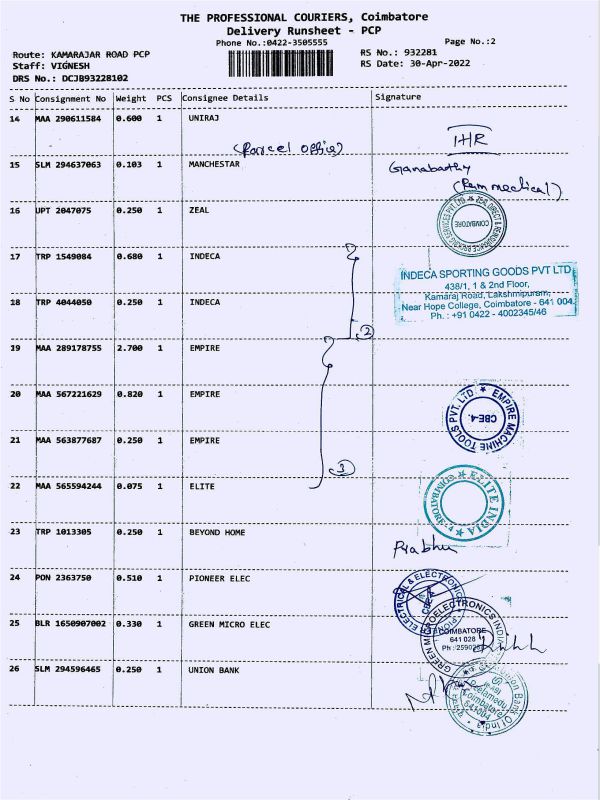 THE PROFESSIONAL COURIERS, Coimbatore
Delivery Runsheet - PCP
Phone No.:0422-3505555 Page No.:2
Route: KAMARAJAR ROAD PCP RS No.: 932281
Staff: VIGNESH RS Date: 30-Apr-2022
DRS No.: DCJB93228102
S No Consignment No Weight PCS Consignee Details Signature
14 MAA 290611584 0.600 1 UNIRAJ
(Parcel office) IHR
15 SLM 294637063 0.103 1 MANCHESTAR Ganabathy
(Ram medical)
16 UPT 2047075 0.250 1 ZEAL
COIMBATORE
17 TRP 1549084 0.680 1 INDECA
INDECA SPORTING GOODS PVT LTD
438/1, 1 & 2nd Floor,
Kamaraj Road, Lakshmipuram,
18 TRP 4044050 0.250 1 INDECA
Near Hope College, Coimbatore - 641 004.
Ph. : +91 0422 - 4002345/46
2
19 MAA 289178755 2.700 1 EMPIRE
20 MAA 567221629 0.820 1 EMPIRE
EMPIRE MACHINE TOOLS PVT. LTD
CBE-4.
21 MAA 563877687 0.250 1 EMPIRE
3
22 MAA 565594244 0.075 1 ELITE
ELITE INDIA
COIMBATORE-4
23 TRP 1013305 0.250 1 BEYOND HOME
Prabhu
24 PON 2363750 0.510 1 PIONEER ELEC
ELECTRICAL & ELECTRONIC
25 BLR 1650907002 0.330 1 GREEN MICRO ELEC
GREEN MICROELECTRONICS INDIA
COIMBATORE
641 028
26 SLM 294596465 0.250 1 UNION BANK
Union Bank Of India
Peelamedu
Coimbatore
641004